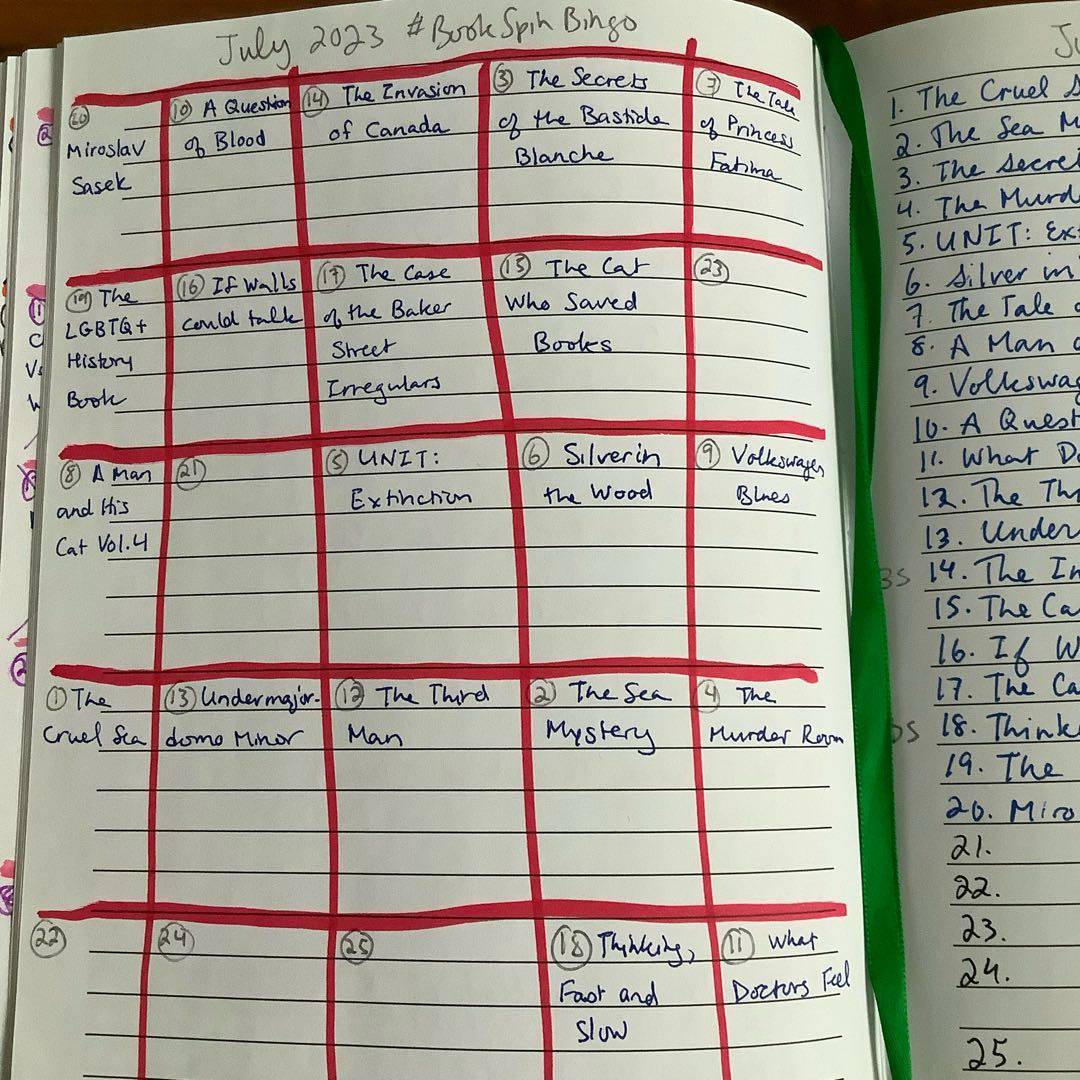 July 2023 #BookSpinBingo
20
Miroslav
Sasek
10 A Question
of Blood
14 The Invasion
of Canada
3 The Secrets
of the Bastide
Blanche
7 The Tale
of Princess
Fatima
19 The
LGBTQ+
History
Book
16 If Walls
could talk
17 The Case
of the Baker
Street
Irregulars
15 The Cat
Who Saved
Books
23
8 A Man
and His
Cat Vol.4
21
5 UNIT:
Extinction
6 Silver in
the Wood
9 Volkswagen
Blues
1 The
Cruel Sea
13 Undermajor-
domo Minor
12 The Third
Man
2 The Sea
Mystery
4 The
Murder Room
22
24
25
18 Thinking,
Fast and
Slow
11 What
Doctors Feel
Ju
1. The Cruel S
2. The Sea M
3. The Secret
4. The Murd
5. UNIT: Ext
6. Silver in
7. The Tale o
8. A Man a
9. Volkswag
10. A Quest
11. What Do
12. The Th
13. Under
BS 14. The In
15. The Ca
16. If W
17. The Ca
DS 18. Think
19. The
20. Miro
21.
22.
23.
24.
25.